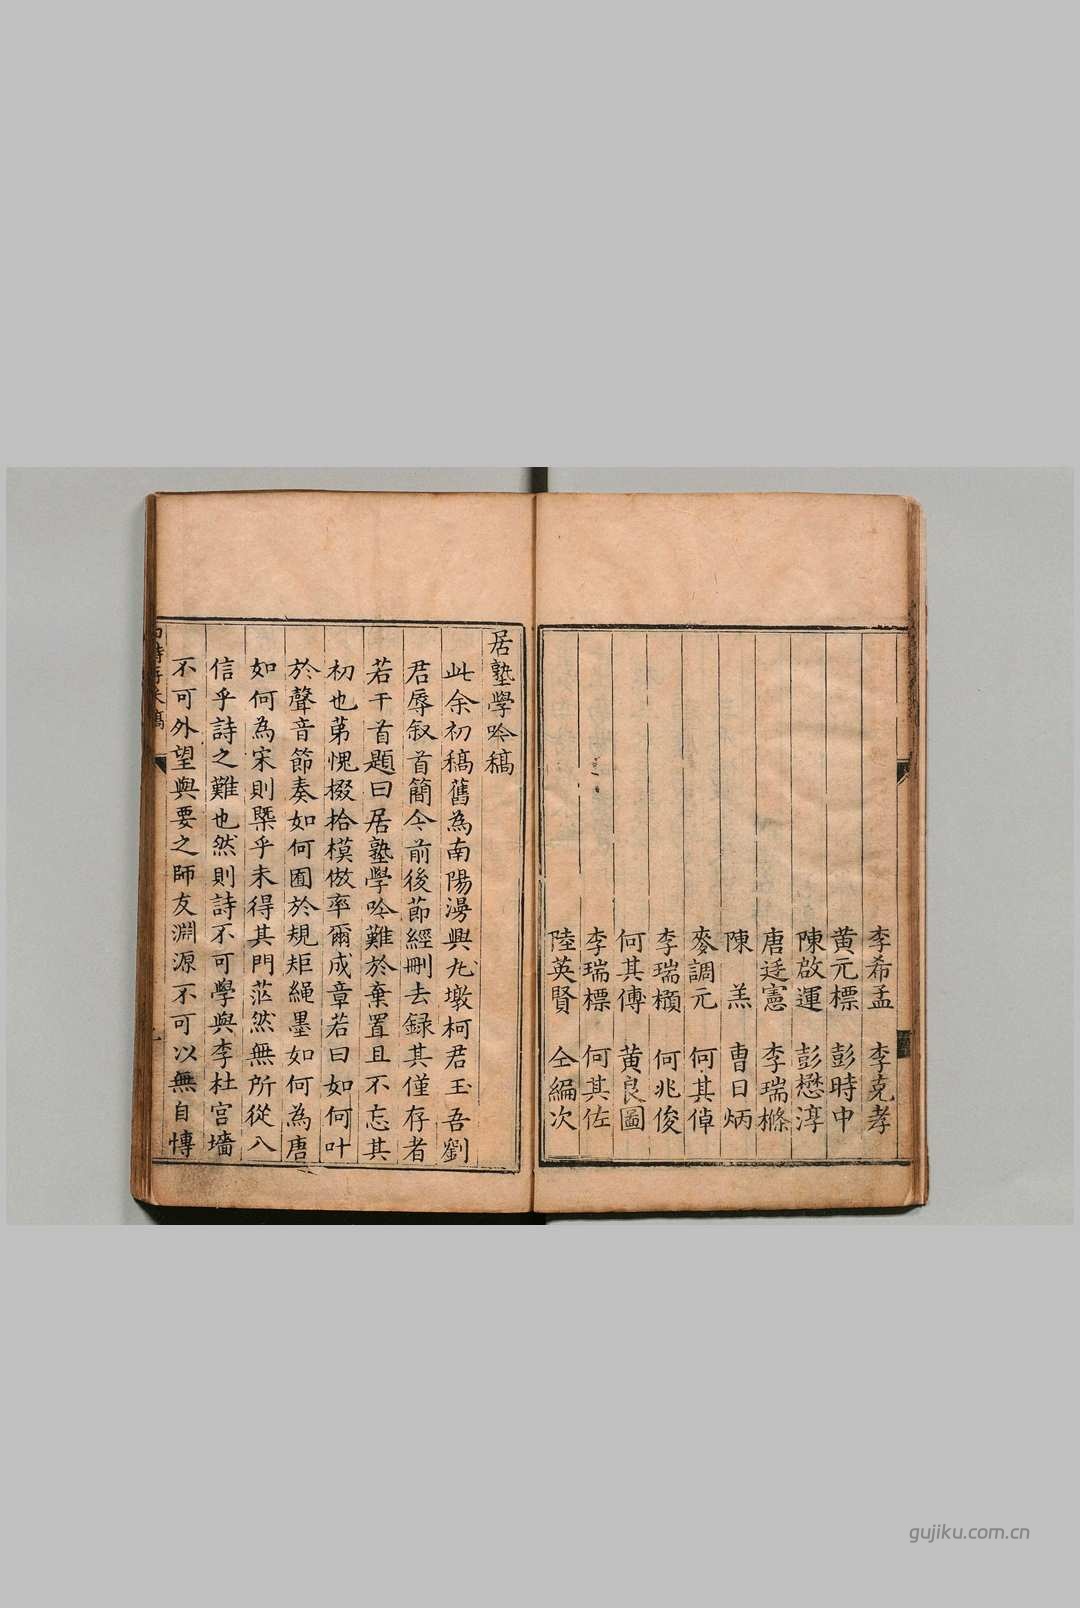 李希孟　李克孝
黄元標　彭時中
陳啟運　彭懋淳
唐廷憲　李瑞樤
陳　羔　曹日炳
麥調元　何其倬
李瑞櫇　何兆俊
何其傅　黄良圖
李瑞標　何其佐
陸英賢　仝編次
居塾學吟稿
此余初稿舊為南陽漫興九墩柯君玉吾劉
君辱叙首簡今前後節經刪去録其僅存者
若干首題曰居塾學吟難於棄置且不忘其
初也苐愧掇拾模倣率爾成章若曰如何叶
於聲音節奏如何囿於規矩繩墨如何為唐
如何為宋則槩乎未得其門茫然無所從入
信乎詩之難也然則詩不可學與李杜宫墻
不可外望與要之師友淵源不可以無自慱
詩存未稿
gujiku.com.cn